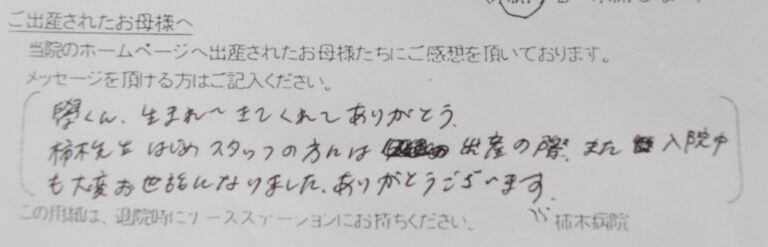 ご出産されたお母様へ
当院のホームページへ出産されたお母様たちにご感想を頂いております。
メッセージを頂ける方はご記入ください。
學くん、生まれてきてくれてありがとう。
柿木先生はじめスタッフの方々には 出産の際、また 入院中
も大変お世話になりました。ありがとうございます。
この用紙は、退院時にナースステーションにお持ちください。 柿木病院